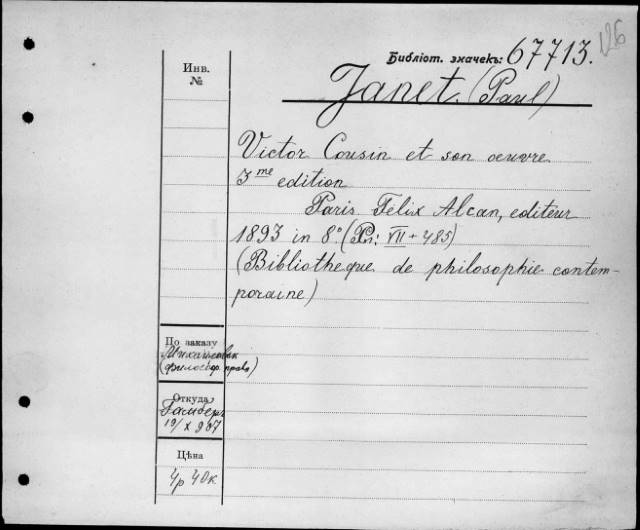 126
Библіот. значекъ: 67713.
Инв.
№
Janet. (Paul)
Victor Cousin et son oeuvre
3me edition
Paris. Felix Alcan, editeur
1893 in 8° (Pп: VII + 485)
(Bibliotheque de philosophie contem-
poraine)
По заказу
(философ. права)
Откуда,
19/X 907
Цѣна
4р 40к